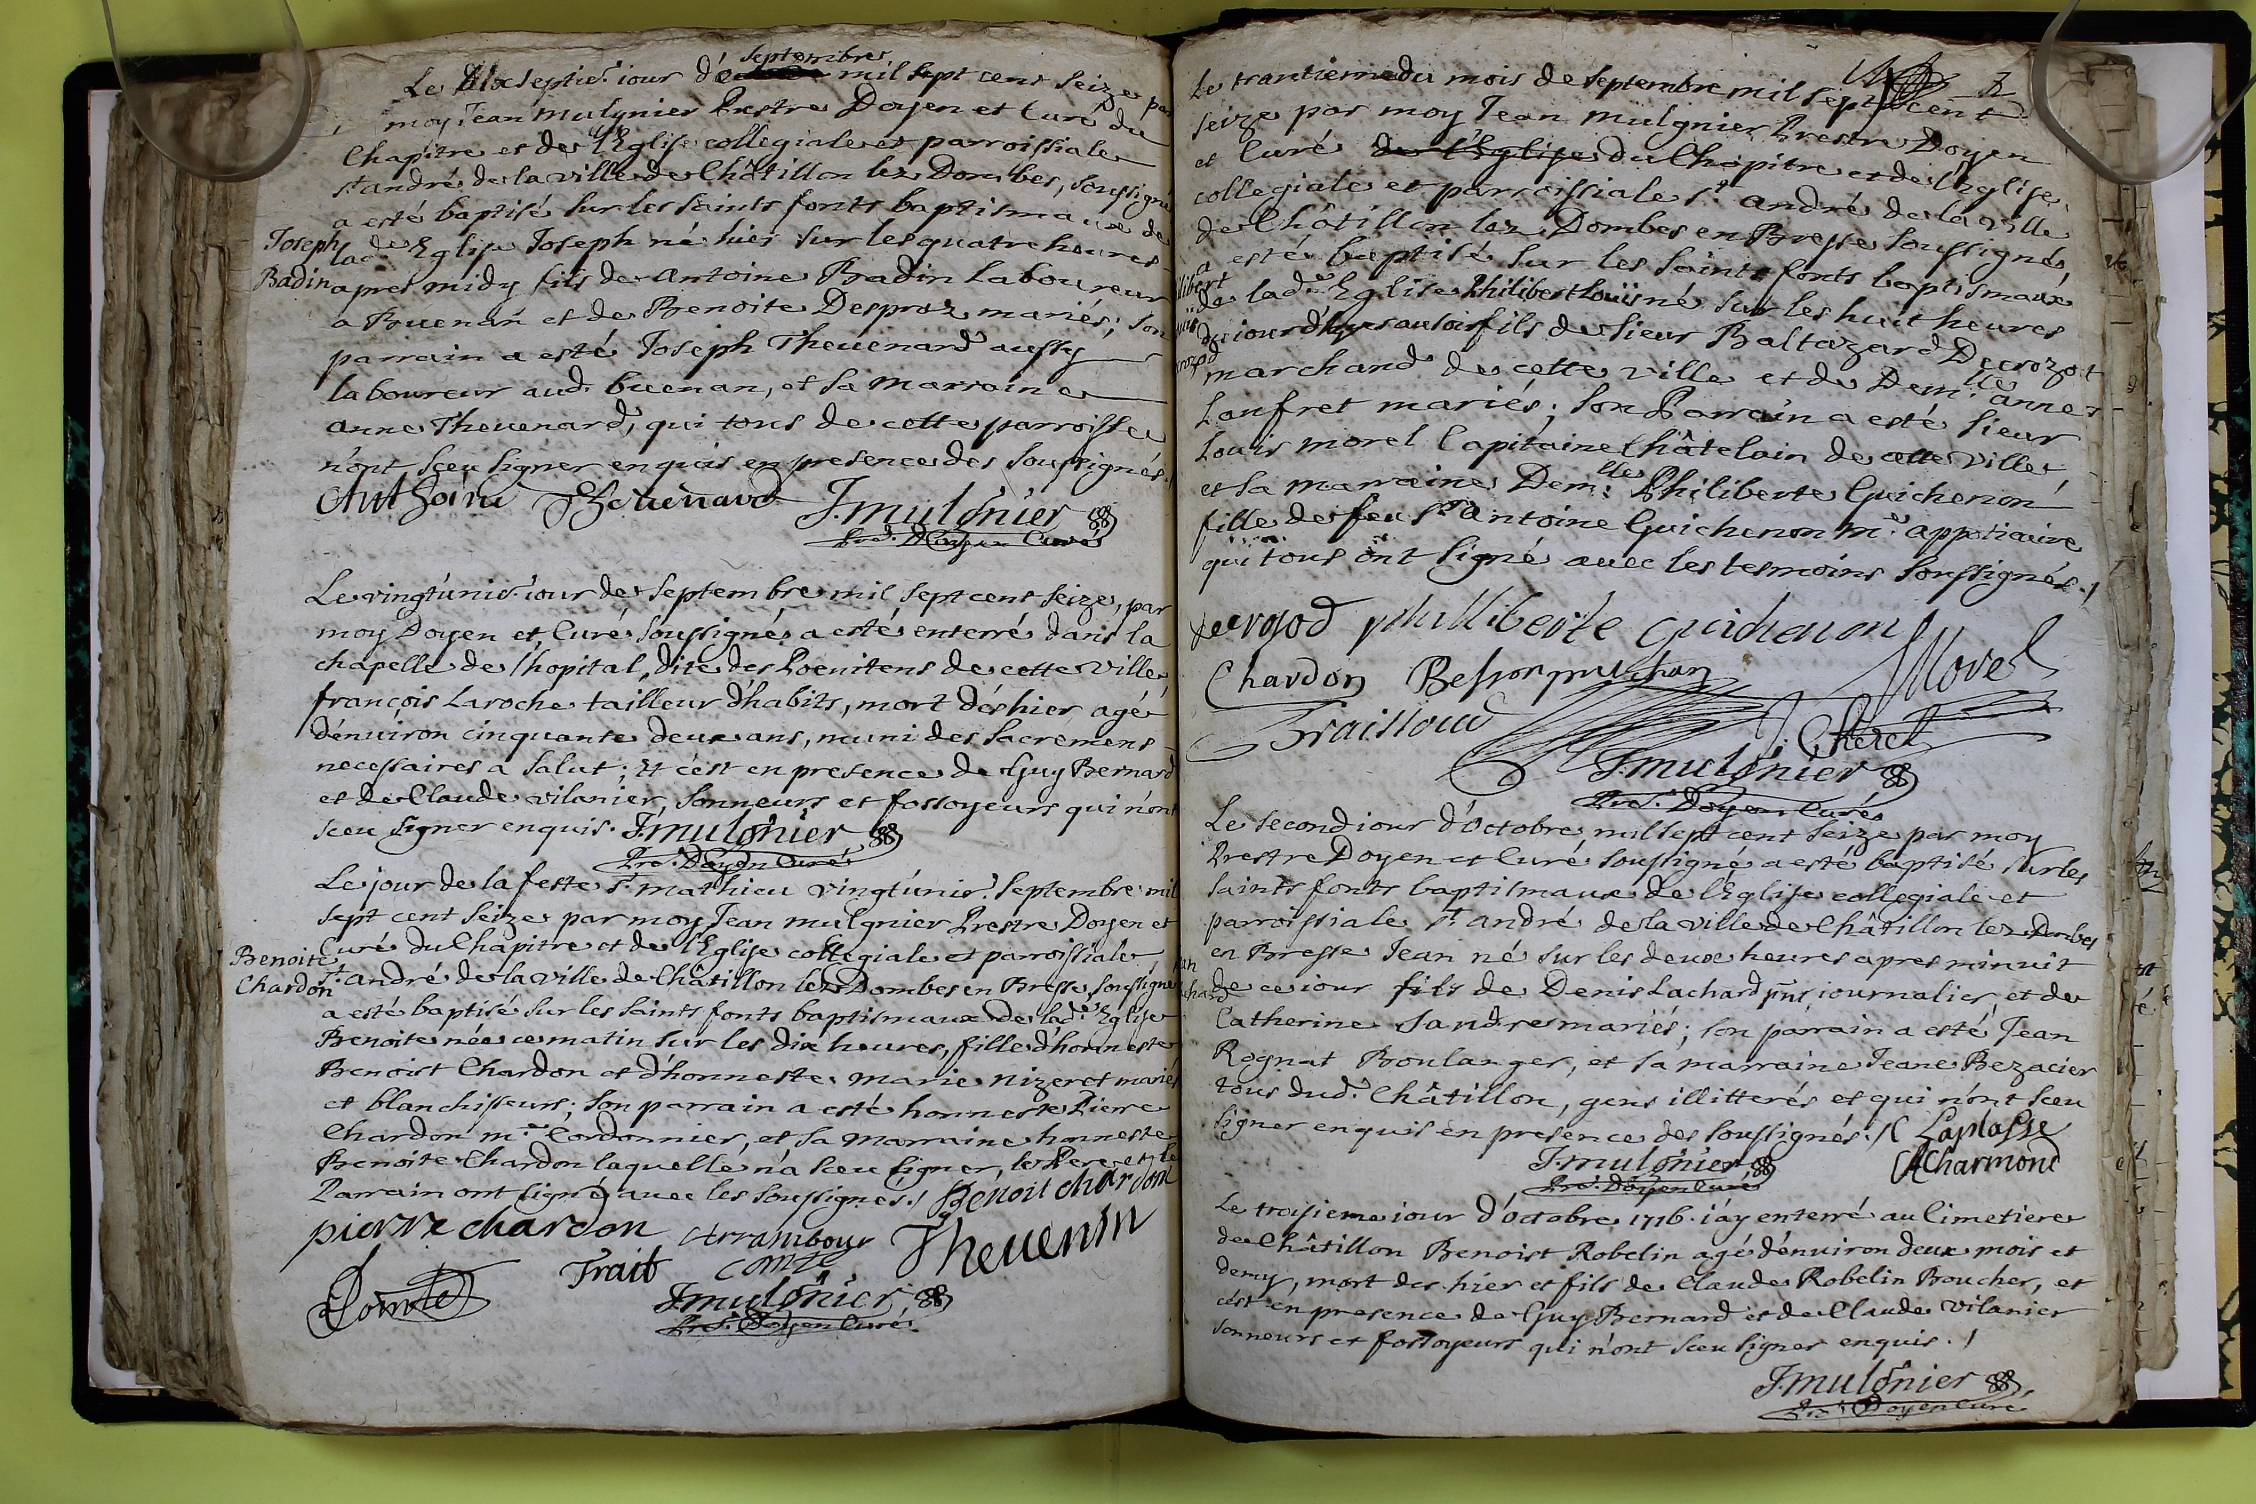 Septembre
Le dix septie.r iour d' mil sept cent seize par
moy Jean Mulgnier Prestre Doyen et Curé du
Chapitre et de l'Eglise collegiale et parroissiale
st andré de la ville de Châtillon lez Dombes, soussigné
a esté baptisé sur les saints fonts baptismaux de
lad.e Eglise Joseph né hier sur les quatre heures
Joseph
Badin
apres midy fils de Antoine Badin Laboureur
a Buenan et de Benoite Desproz mariés; son
parrain a esté Joseph Thevenard aussy
laboureur aud. buenan, et sa marraine
anne Thevenard, qui tous de cette parroisse
n'ont sceu signer enquis en presence des soussignés./
Anthoine Thevenard J. mulgnier
Pre. Doyen Curé
Le vingt'unie.r iour de septembre mil sept cent seize, par
moy Doyen et Curé soussigné a esté enterré dans la
chapelle de l'hopital, dite des Poenitens de cette ville,
françois Laroche tailleur d'habits, mort dés hier agé
d'environ cinquante deux ans, muni des sacremens
necessaires a salut; Et c'est en presence de Guy Bernard
et de Claude vilanier, sonneurs et fossoyeurs qui n'ont
sceu signer enquis. J. mulgnier
Pre. Doyen Curé
Le jour de la feste st mathieu vingt'unie.r septembre mil
sept cent seize par moy Jean mulgnier Prestre Doyen et
Curé du Chapitre et de l'Eglise collegiale et parroissiale
Benoite
Chardon
st. andré de la ville de Châtillon lez Dombes en Bresse, soussigné
a esté baptisé sur les saints fonts baptismaux de lad.e Eglise
Benoite née ce matin sur les dix heures, fille d'honneste
Benoist Chardon et d'honneste marie nizeret mariés
et blanchisseurs; son parrain a esté honneste Pierre
Chardon m.e Cordonnier, et sa marraine honneste
Benoite Chardon laquelle n'a sceu signer, le Pere et le
Parrain ont signé avec les soussignés./ Benoit chardon
pierre chardon Thevenin
Trait comte
Comte J. mulgnier
Pre. Doyen Curé
Le trantieme du mois de septembre mil sept cent
seize par moy Jean mulgnier Prestre Doyen
et Curé de l'Eglise du Chapitre et de l'Eglise
collegiale et parroissiale st. andré de la ville
de Châtillon lez Dombes en Bresse soussigné,
a esté baptisé sur les saints fonts baptismaux
de lad.e Eglise Philibert Louïs né sur les huit heures
du iour d'hyer au soir fils de sieur Baltazard Decrozot
marchand de cette ville et de Dem.lle anne
Lanfret mariés; son Parrain a esté sieur
Louis morel Capitaine Châtelain de cette ville,
et sa marraine Dem.lle Philiberte Guichenon
fille de feu sr antoine Guichenon m.e appotiaire
qui tous ont signé avec les tesmoins soussignés./
philliberte guichenon
Chardon Morel
J. mulgnier
Pre. Doyen Curé
Le second iour d'octobre, mil sept cent seize par moy
Prestre Doyen et Curé soussigné a esté baptisé sur les
saints fonts baptismaux de l'Eglise collegiale et
parroissiale st andré de la ville de Châtillon lez Dombes
en Bresse Jean né sur les deux heures apres minuit
de ce iour fils de Denis Lachard journalier, et de
Catherine Sandre mariés; son parrain a esté Jean
Rognat Boulanger, et sa marraine Jeane Bezacier
tous dud. Châtillon, gens illitterés et qui n'ont sceu
signer enquis en presence des soussignés./ C Laplasse
J. mulgnier Charmond
Pre. Doyen Curé
Le troisieme iour d'octobre 1716. i'ay enterré au Cimetiere
de Châtillon Benoist Robelin agé d'environ deux mois et
demy, mort des hier et fils de Claude Robelin Boucher, et
c'est en presence de Guy Bernard et de Claude vilanier
sonneurs et fossoyeurs qui n'ont sceu signer enquis./
J. mulgnier
Pre. Doyen Curé